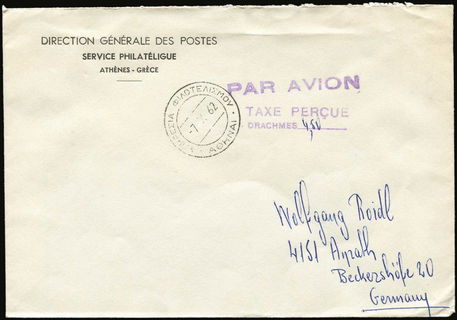 DIRECTION GÉNÉRALE DES POSTES
SERVICE PHILATÉLIGUE
ATHÈNES - GRÈCE
ΥΠΗΡΕΣΙΑ ΦΙΛΟΤΕΛΙΣΜΟΥ
62
ΑΘΗΝΑΙ
PAR AVION
TAXE PERÇUE
DRACHMES 4,50
Wolfgang Roidl
4151 Anrath
Beckershöfe 20
Germany